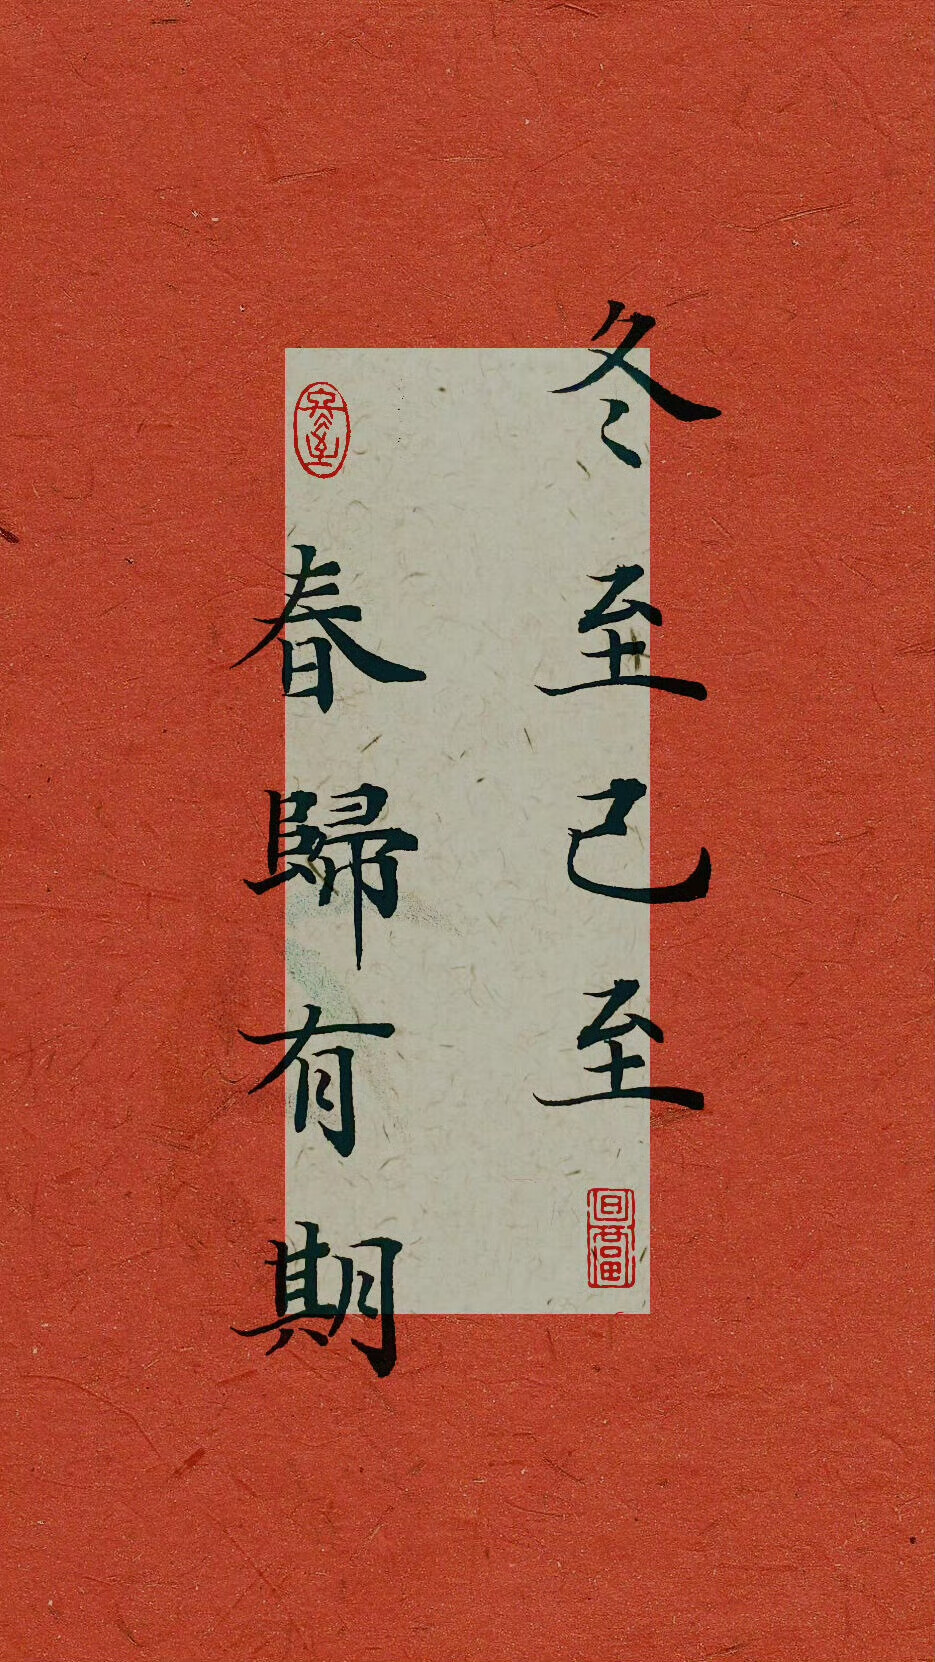 冬至已至
春歸有期